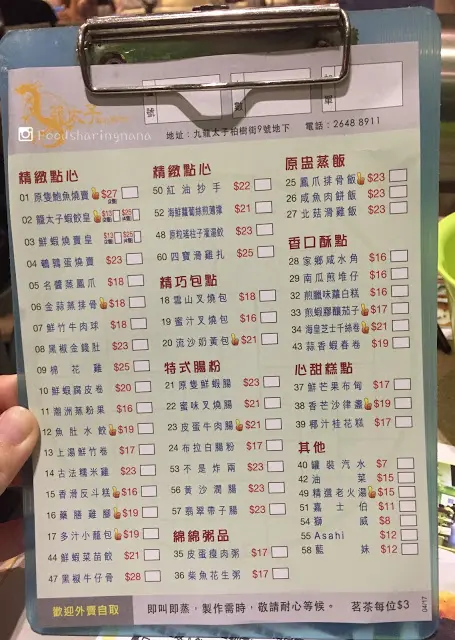 Foodsharingnana
地址：九龍太子柏樹街9號地下 電話：2648 8911
精緻點心
01 原隻鮑魚燒賣 $27
02 龍太子蝦餃皇 $13 $25
03 鮮蝦燒賣皇 $13 $25
04 鵪鶉蛋燒賣 $23
05 名醬蒸鳳爪 $18
06 金蒜蒸排骨 $18
07 鮮竹牛肉球 $18
08 黑椒金錢肚 $23
09 棉花雞 $25
10 鮮蝦腐皮卷 $20
11 潮洲蒸粉果 $16
12 魚肚水餃 $19
13 上湯鮮竹卷 $17
14 古法糯米雞 $23
15 香滑反斗糕 $16
16 藥膳雞腳 $19
17 多汁小籠包 $19
44 鮮蝦菜苗餃 $21
47 黑椒牛仔骨 $28
精緻點心
50 紅油抄手 $22
52 海鮮蘿蔔絲煎薄撐 $21
48 原粒瑤柱子灌湯餃 $23
60 四寶滑雞扎 $25
精巧包點
18 雪山叉燒包 $18
19 蜜汁叉燒包 $16
20 流沙奶黃包 $21
特式腸粉
21 原隻鮮蝦腸 $23
22 蜜味叉燒腸 $21
23 皮蛋牛肉腸 $21
24 布拉白腸粉 $17
53 不是炸兩 $23
56 黃沙潤腸 $23
57 翡翠帶子腸 $23
綿綿粥品
35 皮蛋瘦肉粥 $17
36 柴魚花生粥 $17
原盅蒸飯
25 鳳爪排骨飯 $23
26 咸魚肉餅飯 $23
27 北菇滑雞飯 $23
香口酥點
28 家鄉咸水角 $16
29 南瓜煎堆仔 $16
32 煎臘味蘿白糕 $16
33 煎蝦膠釀茄子 $17
34 海皇芝士千絲卷 $21
43 蒜香蝦春卷 $19
心甜糕點
37 鮮芒果布甸 $17
38 香芒沙律盞 $19
39 椰汁桂花糕 $17
其他
40 罐裝汽水 $7
42 油菜 $15
49 精選老火湯 $15
51 嘉士伯 $11
54 獅威 $8
55 Asahi $12
58 藍妹 $12
歡迎外賣自取 即叫即蒸，製作需時，敬請耐心等候。 茗茶每位$3
04/17